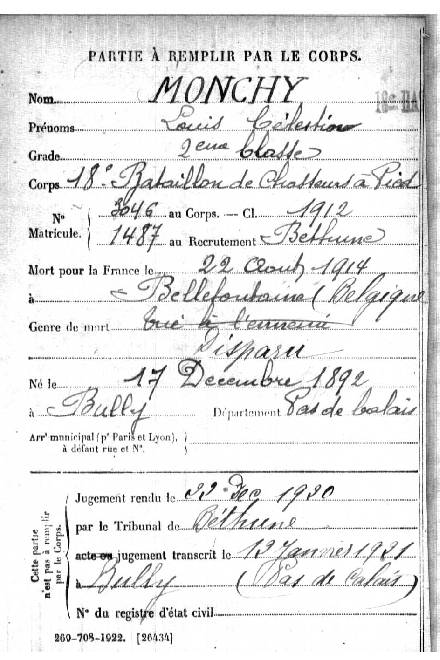 PARTIE À REMPLIR PAR LE CORPS.
Nom MONCHY
Prénoms Louis Célestin
Grade 2eme Classe
Corps 18e Bataillon de Chasseurs à Pied
N° Matricule. 3646 au Corps. — Cl. 1912
1487 au Recrutement Béthune
Mort pour la France le 22 Aout 1914
à Bellefontaine (Belgique
Genre de mort tué à l'ennemi
Disparu
Né le 17 Decembre 1892
à Bully Département Pas de Calais
Arrt municipal (pr Paris et Lyon),
à défaut rue et N°.
Cette partie n'est pas à remplir par le Corps.
Jugement rendu le 22 Dec 1920
par le Tribunal de Béthune
acte ou jugement transcrit le 12 Janvier 1921
à Bully (Pas de Calais)
N° du registre d'état civil
269-708-1922. [26434]